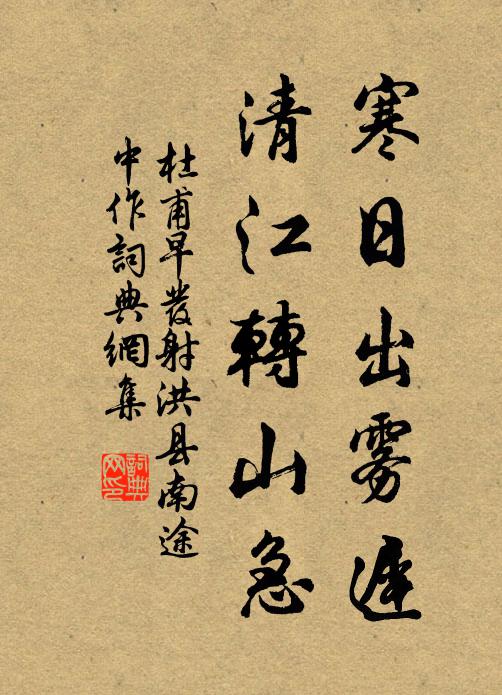 寒日出雾遲
清江轉山急
杜甫早發射洪县南途
中作詞典網集
詞典
网印